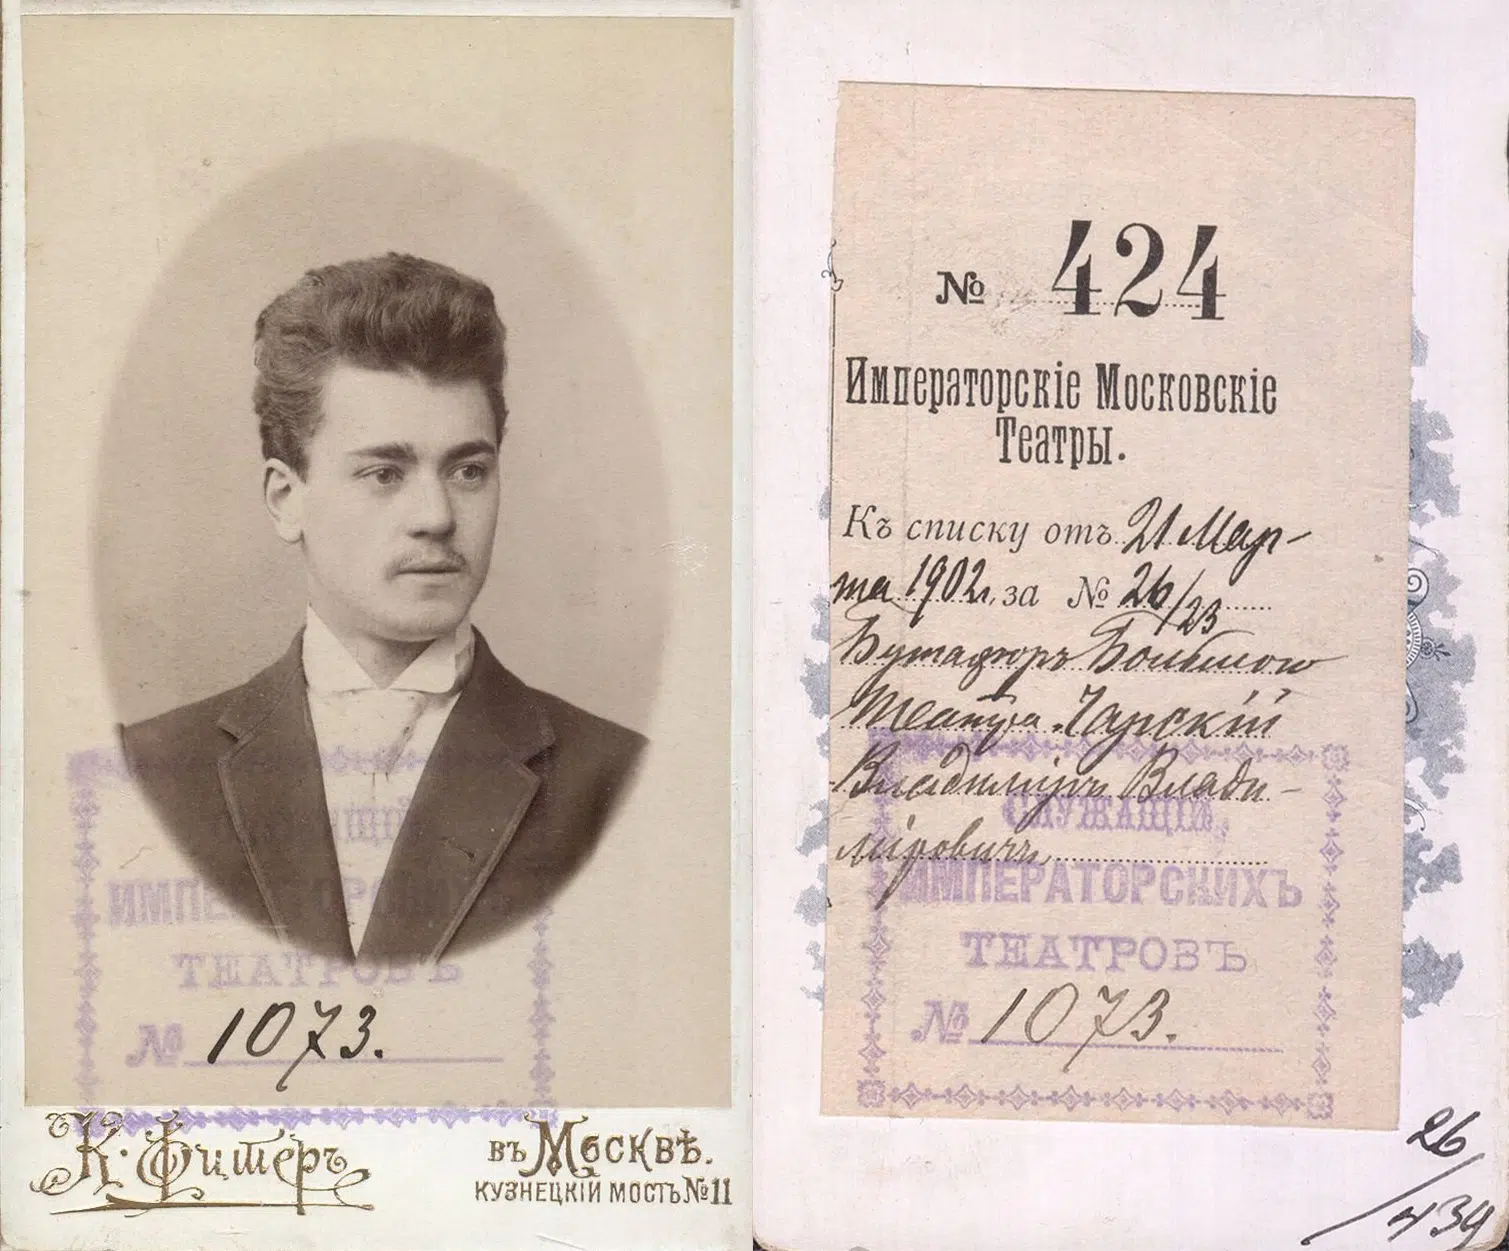 СЛУЖАЩІЙ
ИМПЕРАТОРСКИХЪ
ТЕАТРОВЪ
№ 1073.
К. Фишеръ
въ Москвѣ.
КУЗНЕЦКІЙ МОСТЪ № 11
№ 424
Императорскіе Московскіе
Театры.
Къ списку отъ 21 Мар-
та 1902 г. за № 26/23
Бутафоръ Большого
Театра Чарскій
Владиміръ Влади-
міровичъ
СЛУЖАЩІЙ
ИМПЕРАТОРСКИХЪ
ТЕАТРОВЪ
№ 1073.
26/439